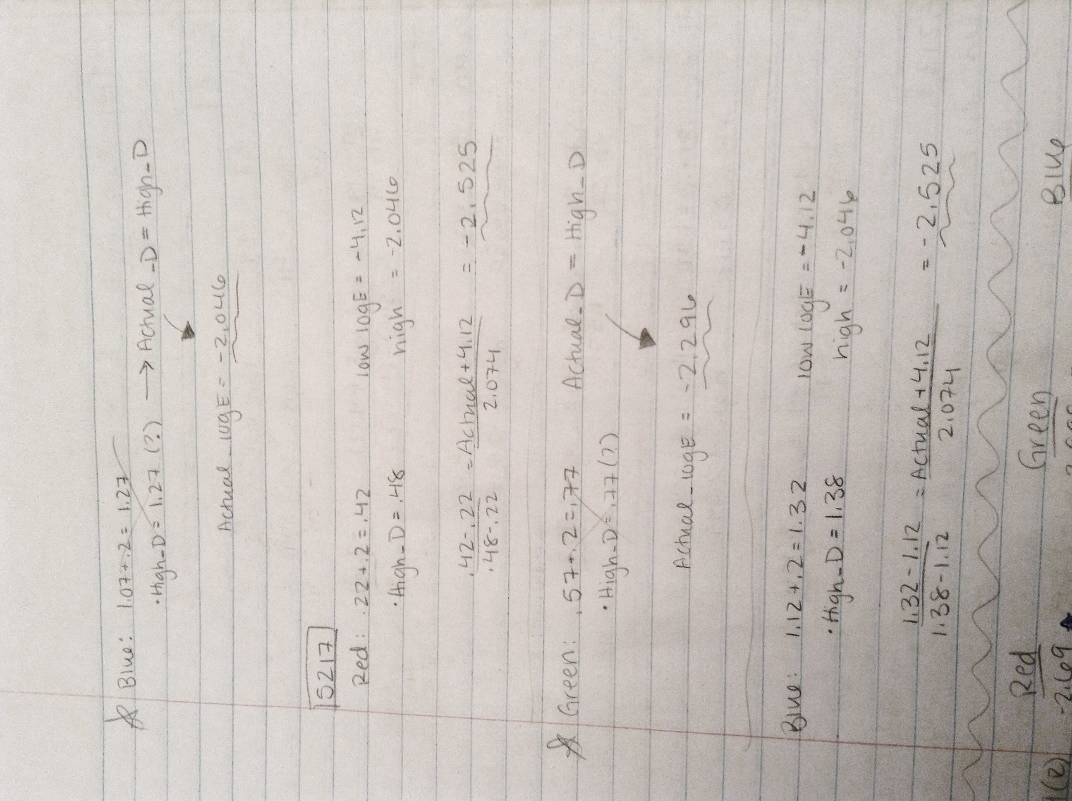 ☆ Blue: 1.07+.2=1.27
• High_D = 1.27 (?) → Actual_D = High_D
Actual_logE = -2.046
5217
Red: .22+.2=.42 low logE = -4.12
• High_D = .48 high = -2.046
.42-.22 = Actual+4.12 = -2.525
.48-.22 2.074
☆ Green: .57+.2=.77 Actual_D = High_D
• High_D = .77 (?)
Actual_logE = -2.296
Blue: 1.12+.2=1.32 low logE = -4.12
• High_D = 1.38 high = -2.046
1.32-1.12 = Actual+4.12 = -2.525
1.38-1.12 2.074
Red Green Blue
1(e) -2.69